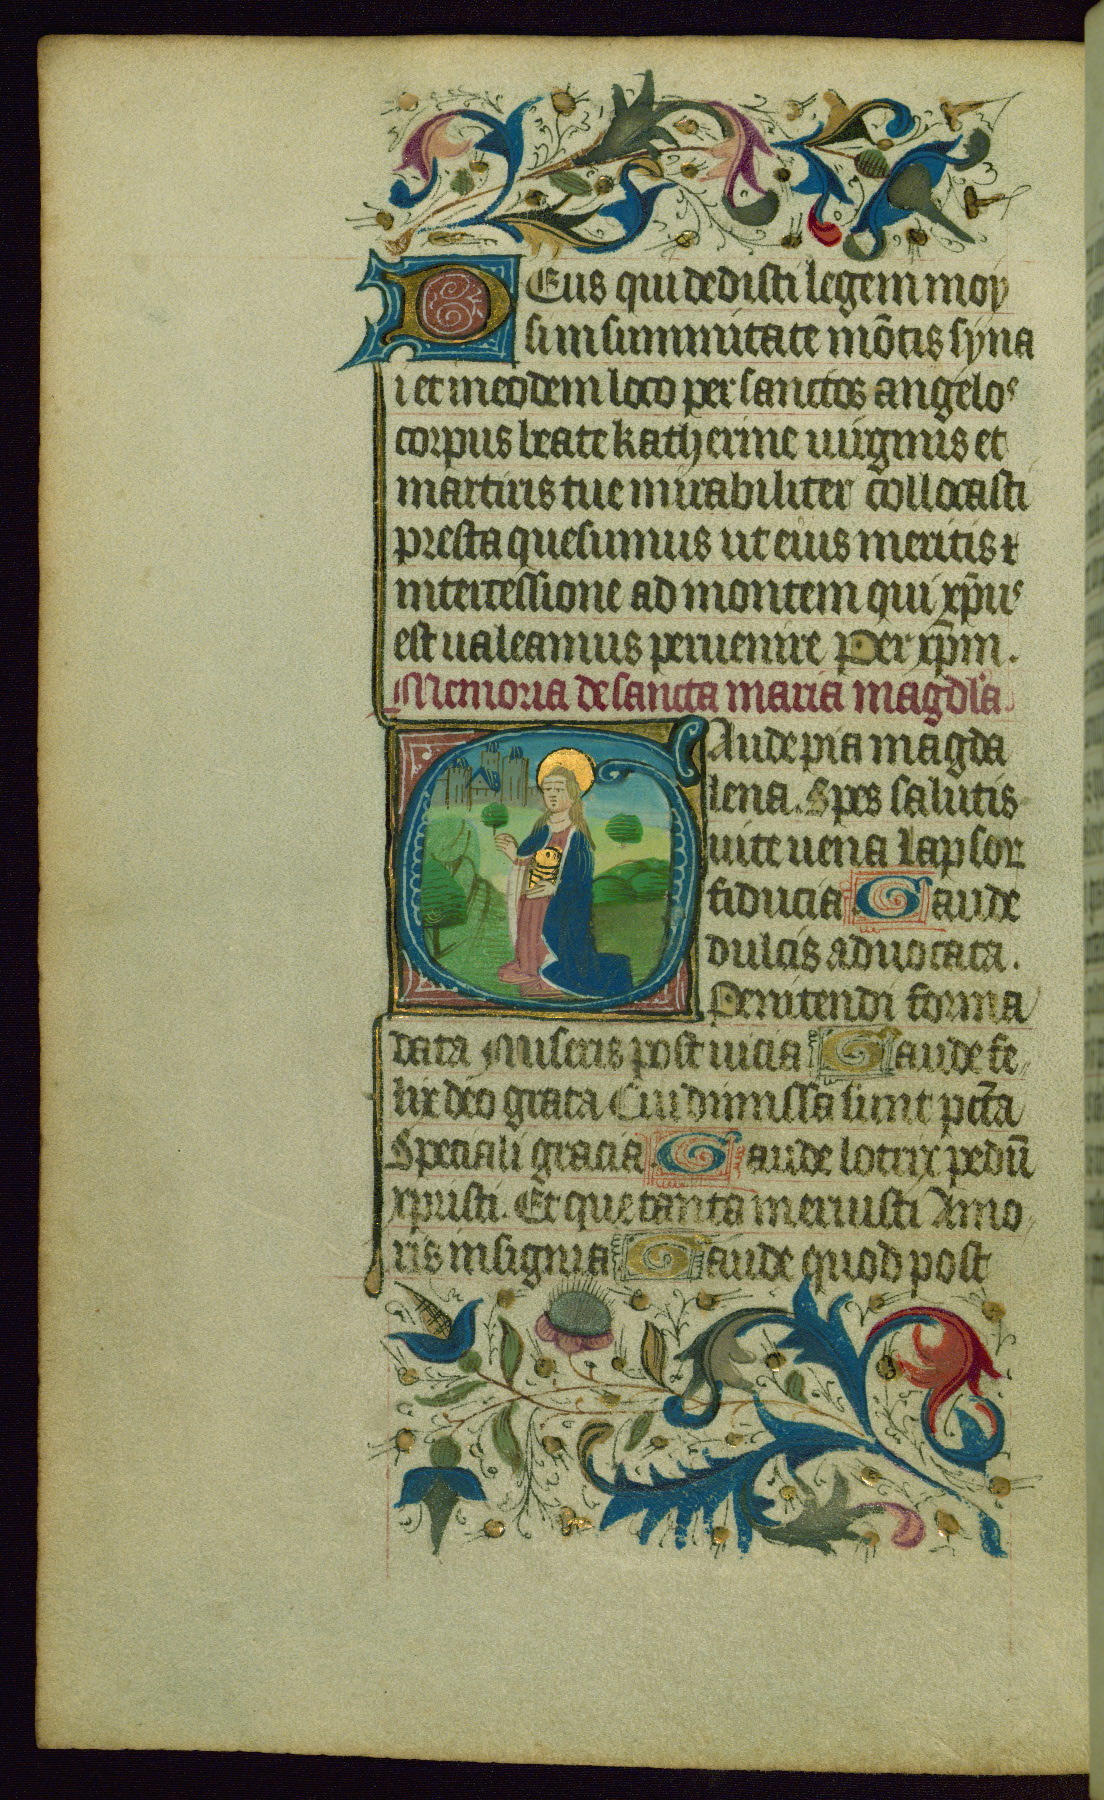 Deus qui dedisti legem moy
si in summitate mōtis syna
i et in eodem loco per sanctos angelos
corpus beate katherine uirginis et
martiris tue mirabiliter collocasti
presta quesumus ut eius meritis ⁊
intercessione ad montem qui xp̄us
est ualeamus peruenire Per xp̄m.
Memoria de sancta maria magdl'a.
Gaude pia magda
lena. Spes salutis
uite uena Lapsor
fiducia Gaude
dulcis aduocata.
Penitendi forma
data Miseris post uicia Gaude fe
lix deo grata Cui dimissa sunt pctā
Speciali gracia Gaude lotrix pedū
xpristi. Et que tanta meruisti Amo
ris insignia Gaude quod post